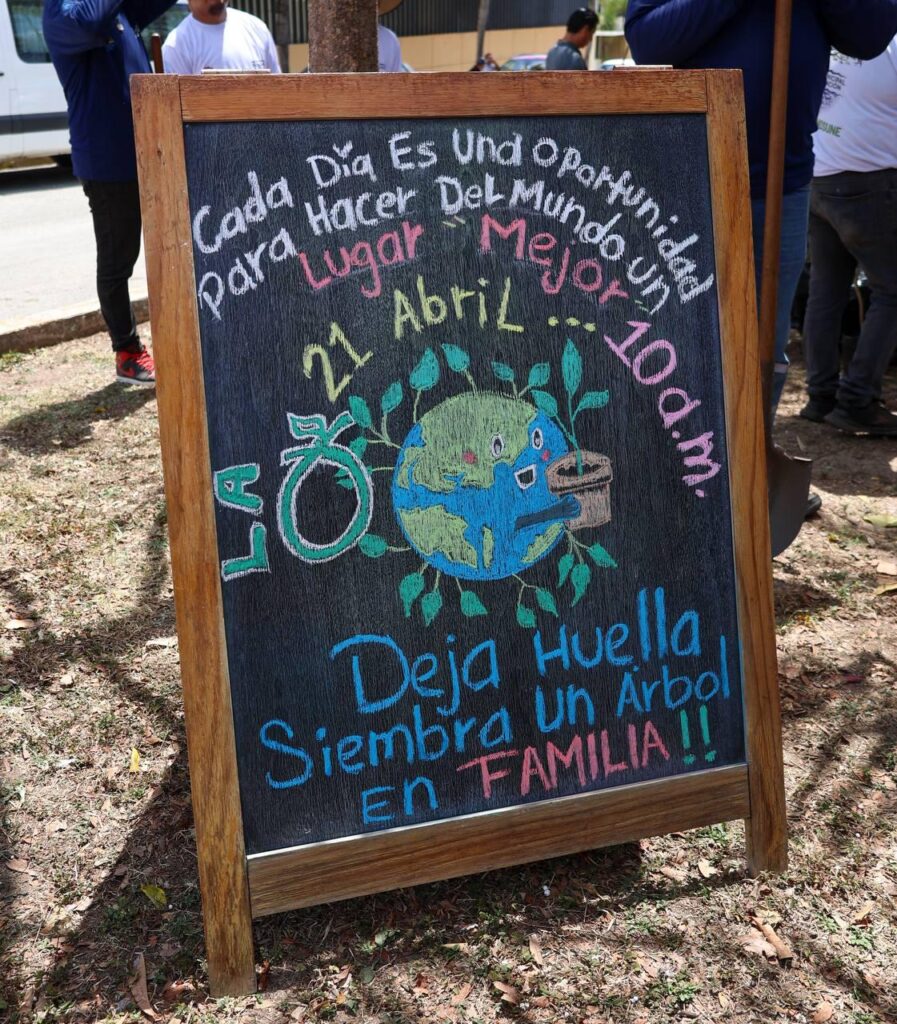 Cada Día Es Una oportunidad
para Hacer Del Mundo Un
Lugar Mejor
21 Abril ...
10 a.m.
LA
Deja Huella
Siembra Un Árbol
en FAMILIA!!